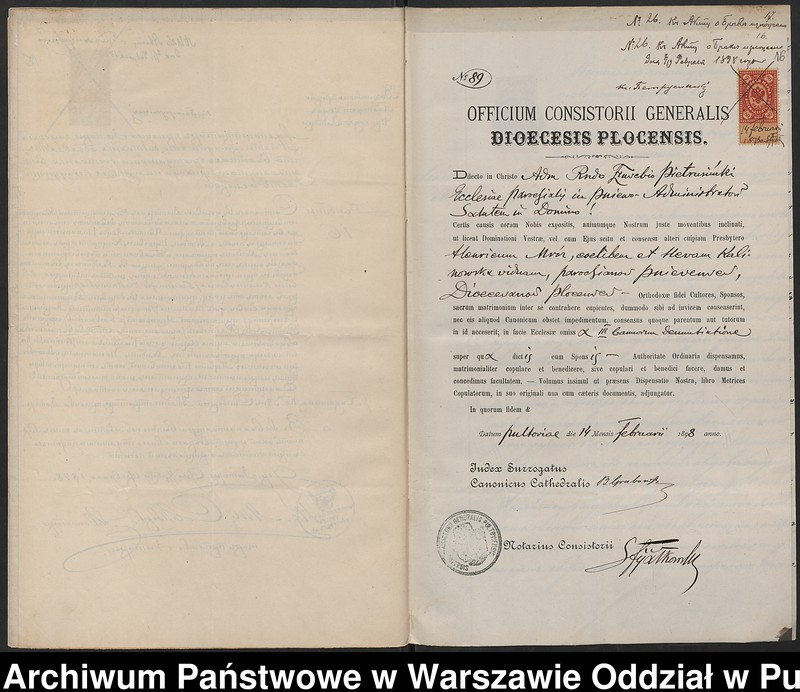 17.
16.
16
№ 26.
№ 26.
1898 года
№ 89
OFFICIUM CONSISTORII GENERALIS
DIOECESIS PLOCENSIS.
14 februarii
Dilecto in Christo Adm Rndo Eusebio Pietrusiński
Ecclesiae parochialis in Pniewo Administratori
Salutem in Domino!
Certis causis coram Nobis expositis, animumque Nostrum juste moventibus inclinati,
ut liceat Dominationi Vestræ, vel cum Ejus scitu et consensu alteri cuipiam Presbytero
Henricum Mróz, coelibem et Hevam Kali-
nowska viduam, parochianos Pnieven
Dioecesanos Plocen — Orthodoxæ fidei Cultores, Sponsos,
sacrum matrimonium inter se contrahere cupientes, dummodo sibi ad invicem consenserint,
nec eis aliquod Canonicum obstet impedimentum, consensus quoque parentum aut tutorum
in id accesserit; in facie Ecclesiæ omissa III Bannorum denuntiatione
super qua dictis cum Sponsis — Authoritate Ordinaria dispensamus,
matrimonialiter copulare et benedicere, sive copulari et benedici facere, damus et
concedimus facultatem. — Volumus insimul ut præsens Dispensatio Nostra, libro Metrices
Copulatorum, in suo originali una cum cæteris documentis, adjungatur.
In quorum fidem &
Datum Pultoviae die 14 Mensis Februarii 1898 anno.
Judex Surrogatus
Canonicus Cathedralis
Notarius Consistorii
Archiwum Państwowe w Warszawie Oddział w Pu